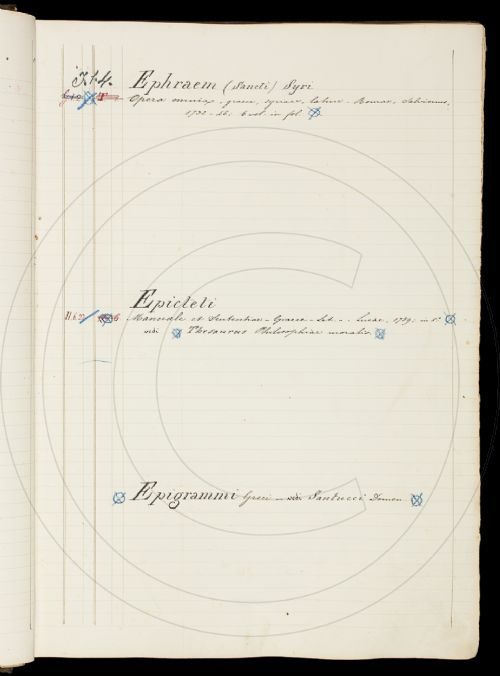 I. 1. 4.
Ephraem (Sancti) Syri
T
Opera omnia, graece, syriace, latine - Romae, Salvioni,
1732 - 46. 6 vol. in fol.
Epicteti
Manuale et Sententiae - Graece - Lat. - Lucae, 1759. in 8°
vedi Thesaurus Philosophiae moralis
Epigrammi Greci - vedi Santucci Domen